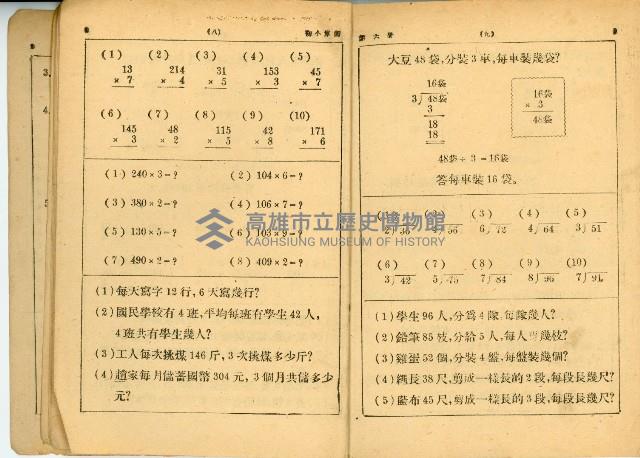 (八)
初小算術
(1) (2) (3) (4) (5)
13 214 31 153 45
× 7 × 4 × 5 × 3 × 7
(6) (7) (8) (9) (10)
145 48 115 42 171
× 3 × 2 × 5 × 8 × 6
(1) 240×3=? (2) 104×6=?
(3) 380×2=? (4) 106×7=?
(5) 130×5=? (6) 103×9=?
(7) 490×2=? (8) 409×2=?
(1) 每天寫字12行,6天寫幾行?
(2) 國民學校有4班,平均每班有學生42人,
4班共有學生幾人?
(3) 工人每次挑煤146斤,3次挑煤多少斤?
(4) 趙家每月儲蓄國幣304元,3個月共儲多少
元?
3.
4.
第六冊
(九)
大豆48袋,分裝3車,每車裝幾袋?
16袋
3)48袋
3
18
18
16袋
× 3
48袋
48袋÷3=16袋
答每車裝16袋。
(3) (4) (5)
2)36 4)56 6)72 4)64 3)51
(6) (7) (8) (9) (10)
3)42 5)75 7)84 8)96 7)91
(1) 學生96人,分為4隊,每隊幾人?
(2) 鉛筆85枝,分給5人,每人幾枝?
(3) 雞蛋52個,分裝4盤,每盤裝幾個?
(4) 繩長38尺,剪成一樣長的2段,每段長幾尺?
(5) 藍布45尺,剪成一樣長的3段,每段長幾尺?
高雄市立歷史博物館
KAOHSIUNG MUSEUM OF HISTORY